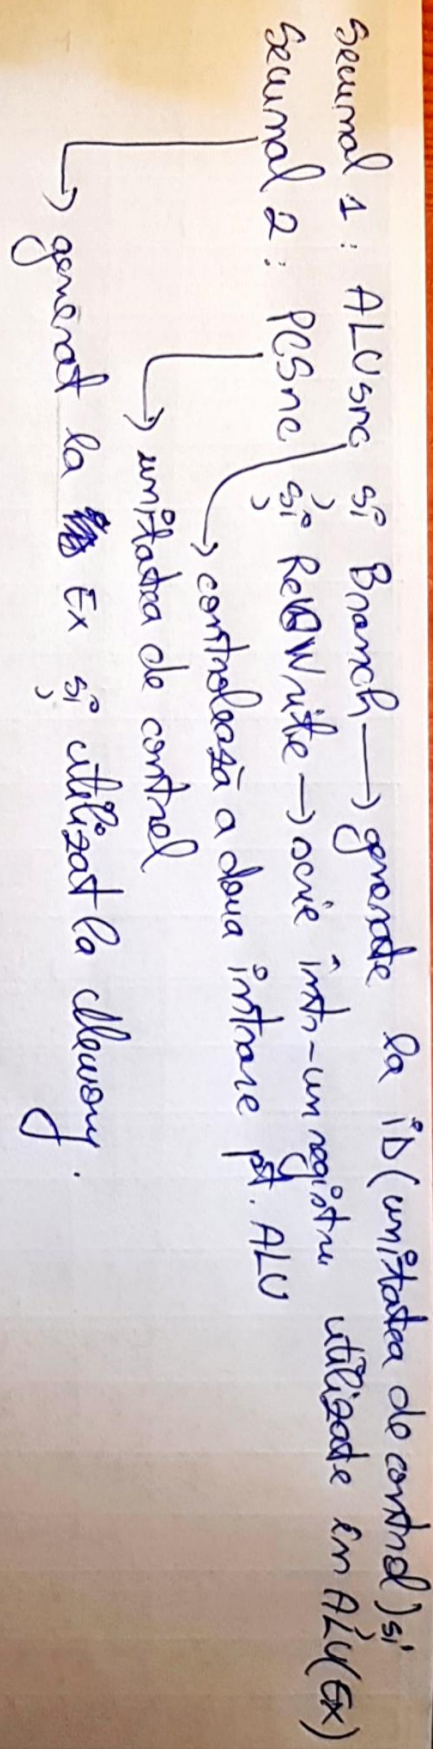 Semnal 1: ALUsrc și Branch → generate la iD (unitatea de control) și
utilizate în ALU (EX)
Semnal 2: PCSrc și RegWrite → scrie într-un registru
→ controlează a doua intrare pt. ALU
→ unitatea de control
→ generat la Ex și utilizat la Memory.